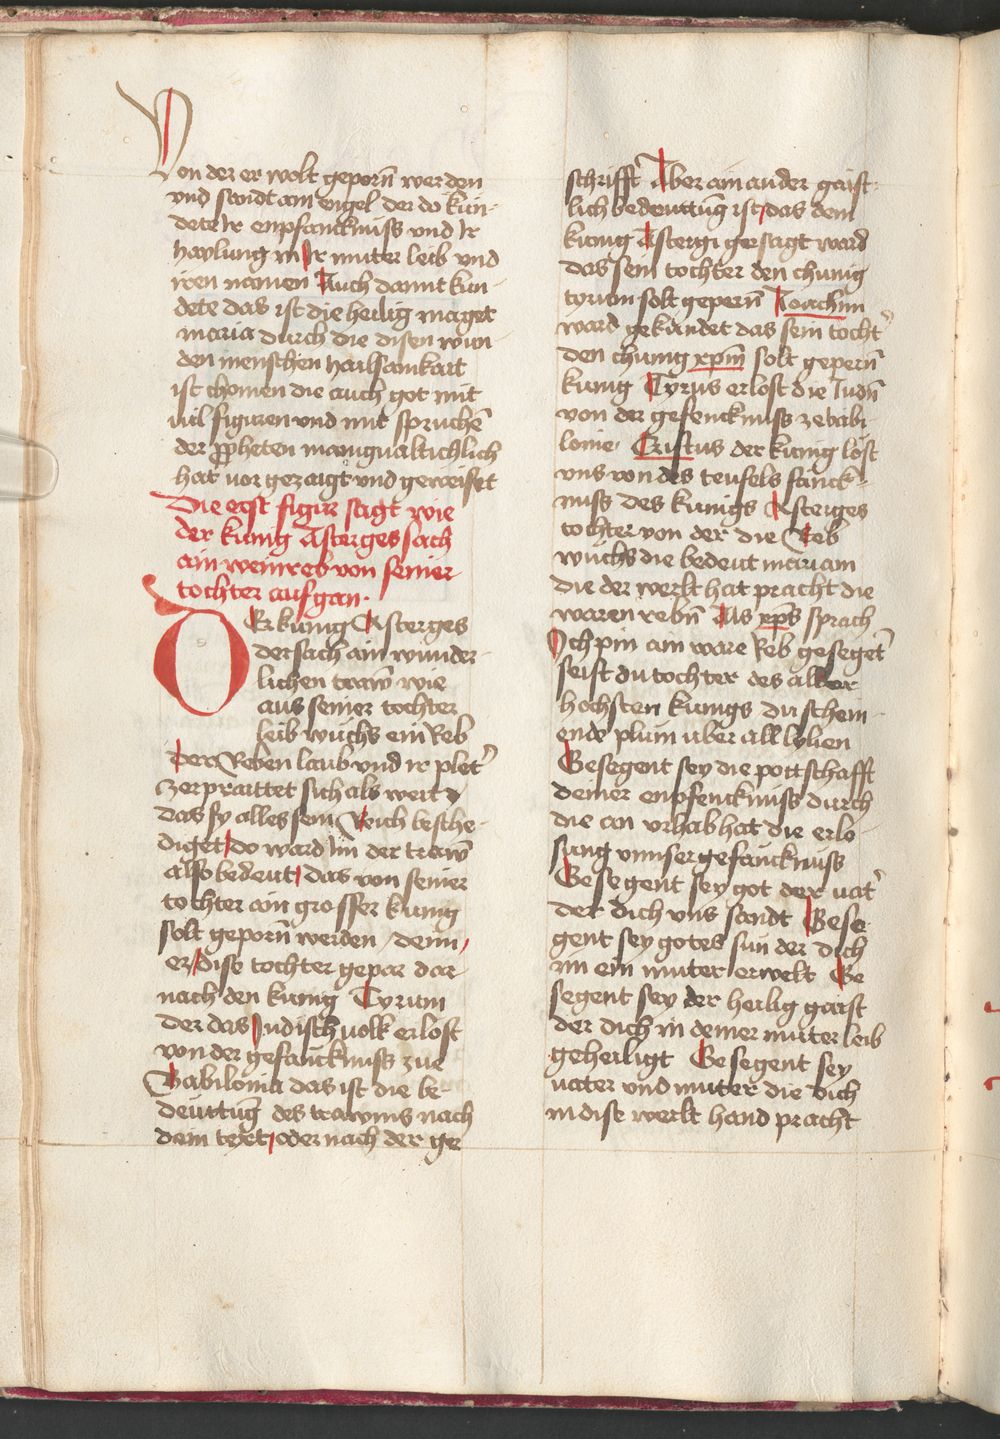 Von der er wolt geporn̄ werden
vnd sandt ain engel der do kün¬
dete Ir enpfancknüss vnd Ir
haylung in Ir muter leib vnd
iren namen Auch damit kün¬
dete das ist die heilig maget
maria durch die disen wun
den menschen hailsamkait
ist chomen die auch got mit
uil figuren vnd mit spruchē
der ꝓpheten manigualtichlich
hat vor gezaigt vnd geweiset
Die erst figur sagt wie
der künig Asterges sach
ain weinreb von seiner
tochter aufgan.
DEr künig Asterges
der sach ain wunder¬
lichen traw̄ wie
aus seiner tochter
leib wuchs ein Reb
der Reben laub vnd ir plet̄
zerpraittet sich als weit
das sy alles sein Reich besche¬
diget / do ward im der traw̄
also bedeut / das von seiner
tochter ain grosser künig
solt geporn̄ werden / denn /
er / dise tochter gepar dar¬
nach den künig Cyrum
der das Iudisch volk erlost
von der gefanckmüss zue
Babilonia das ist die be
deuttūg des trawms nach
dem text / oder nach der ge
schrifft̄ Aber ain ander gaist¬
lich bedeuttūg ist / das dem
künig Astergi gersagt ward
das sein tochter den chunig
cyrum solt gepern̄ Ioachim
ward gekündet das sein tocht̄
den chunig xp̄m̄ solt gepern̄
künig Cyrus erlost die Iudn̄
von der gefencknüss ze babi¬
lonie Cristus der künig löst
vns von des teufels fanck¬
nüss des künigs Asterges
tochter von der die Reb
wuchs die bedeut mariam
die der werlt hat pracht die
waren rebn̄ Als xp̄s sprach
Ich pin ain ware Reb geseget̄
seist du tochter des aller
hochsten künigs du schein¬
ende plüm uber all lylien
Gesegent sey die pottschafft
deiner enpfencknüss durch
die an vrhab hat die erlo¬
sung vnnser gefäncknüss
Gesegent sey got der uat̄
der dich vns sandt Gese
gent sey gotes sun der dich
im ein muter erwelt Ge
segent sey der heilig gaist
der dich in deiner muter leib
geheiligt Gesegent sey
uater vnd muter die dich
in dise werlt hand pracht